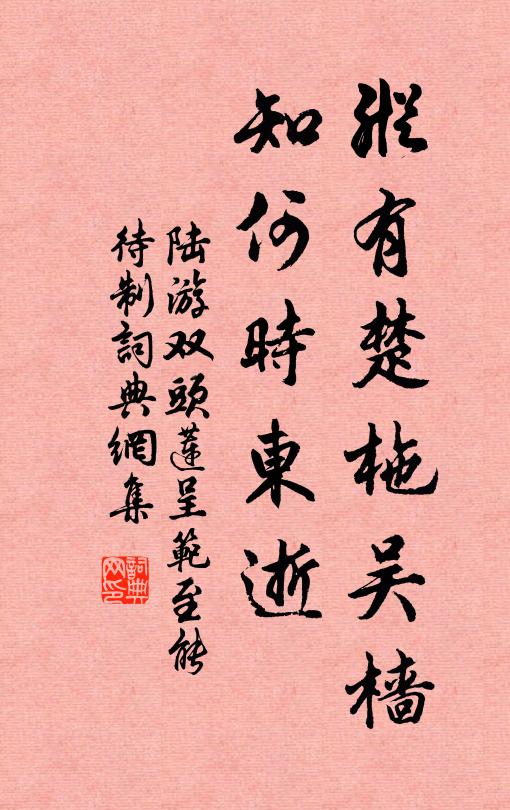 縱有楚柂吴檣
知何時東逝
陆游双頭蓮呈範至能
待制詞典網集
詞典网印